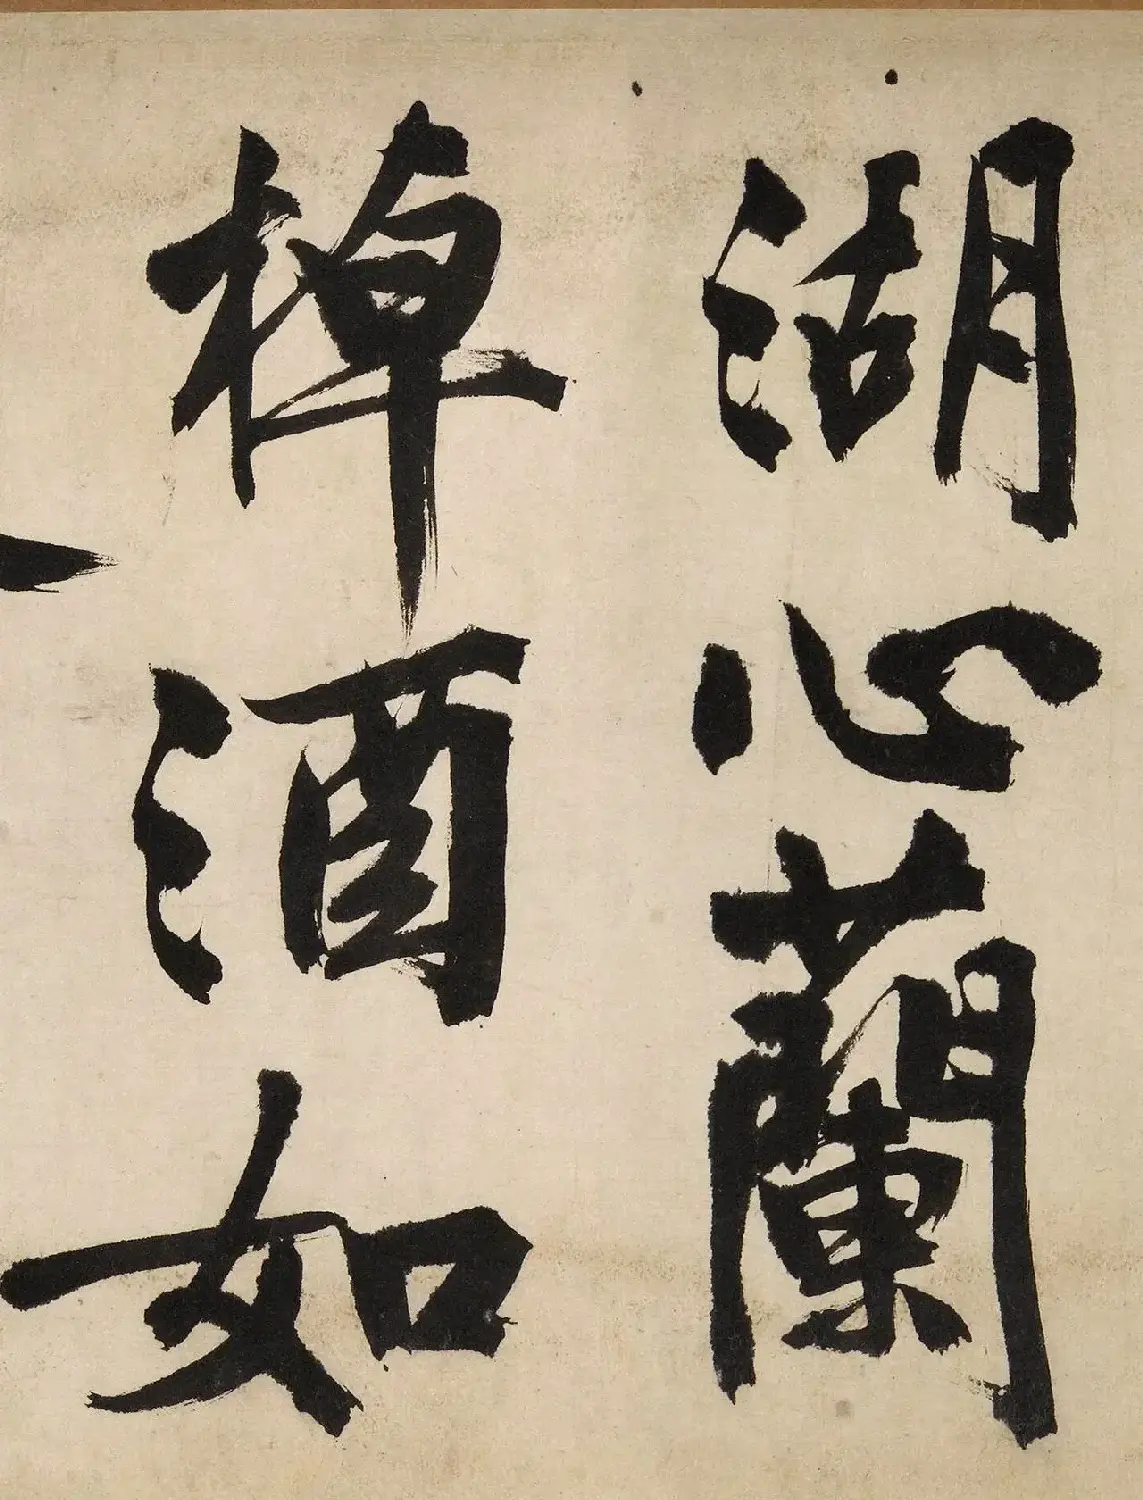 湖心蘭
棹酒如